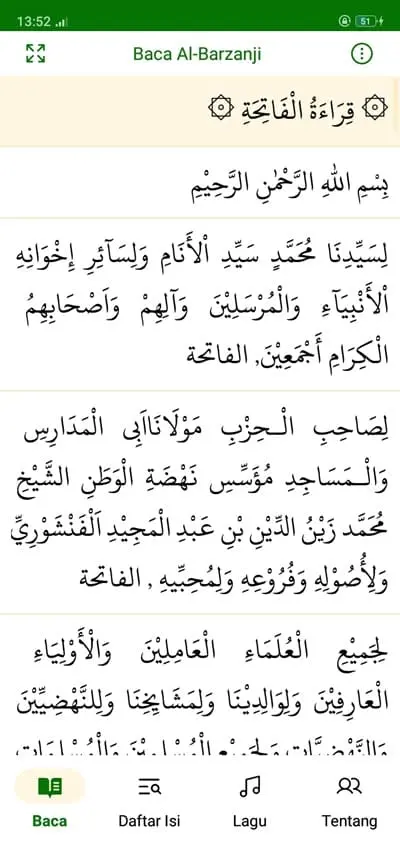 13:52
51
Baca Al-Barzanji
۞ قِرَاءَةُ الْفَاتِحَةِ ۞
بِسْمِ اللهِ الرَّحْمٰنِ الرَّحِيْمِ
لِسَيِّدِنَا مُحَمَّدٍ سَيِّدِ الْأَنَامِ وَلِسَآئِرِ إِخْوَانِهِ
الْأَنْبِيَآءِ وَالْمُرْسَلِيْنَ وَآلِهِمْ وَاَصْحَابِهِمُ
الْكِرَامِ أَجْمَعِيْنَ, الفاتحة
لِصَاحِبِ الْـحِزْبِ مَوْلَانَااَبِى الْمَدَارِسِ
وَالْـمَسَاجِدِ مُؤَسِّسِ نَهْضَةِ الْوَطَنِ الشَّيْخِ
مُحَمَّد زَيْنُ الدِّيْنِ بْنِ عَبْدِ الْمَجِيْدِ اَلْفَنْشُوْرِيِّ
وَلِأُصُوْلِهِ وَفُرُوْعِهِ وَلِمُحِبِّيهِ , الفاتحة
لِجَمِيْعِ الْعُلَمَاءِ الْعَامِلِيْنَ وَالْأَوْلِيَاءِ
الْعَارِفِيْنَ وَلِوَالِدِيْنَا وَلِمَشَايِخِنَا وَلِلنَّهْضِيِّيْنَ
وَالنَّهْضِيَّاتِ وَلِجَمِيْعِ الْمُسْلِمِيْنَ وَالْمُسْلِمَاتِ
Baca
Daftar Isi
Lagu
Tentang